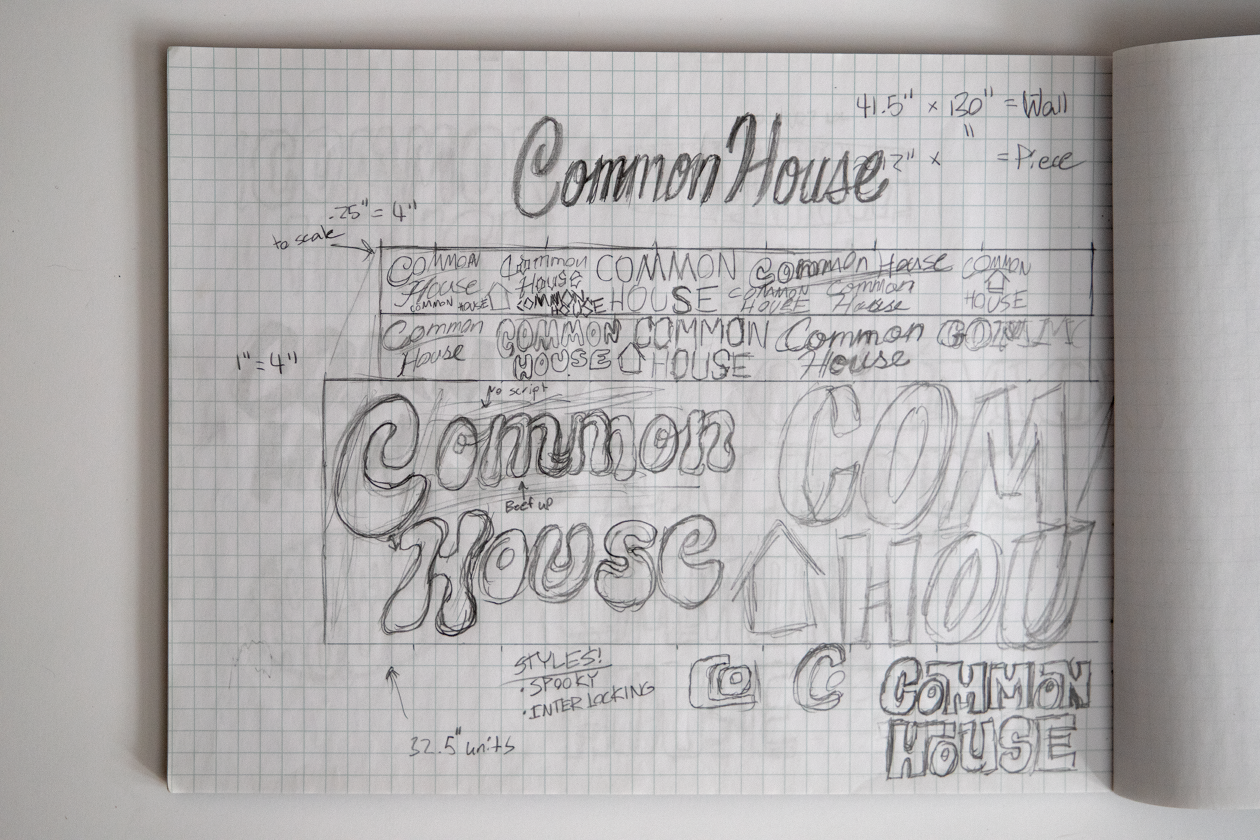 41.5" x 130" = Wall
"
Common House
12" x = Piece
.25" = 4"
to scale
COMMON House
Common House
COMMON HOUSE
Common House
COMMON HOUSE
COMMON HOUSE
COMMON HOUSE
COMMON HOUSE
Common House
Common House
COMMON HOUSE
COMMON HOUSE
Common House
COMM
1" = 4"
No script
Common
COM
Beef up
House
HOU
STYLES!
• SPOOKY
• INTERLOCKING
CO
C
COMMON
HOUSE
32.5" units